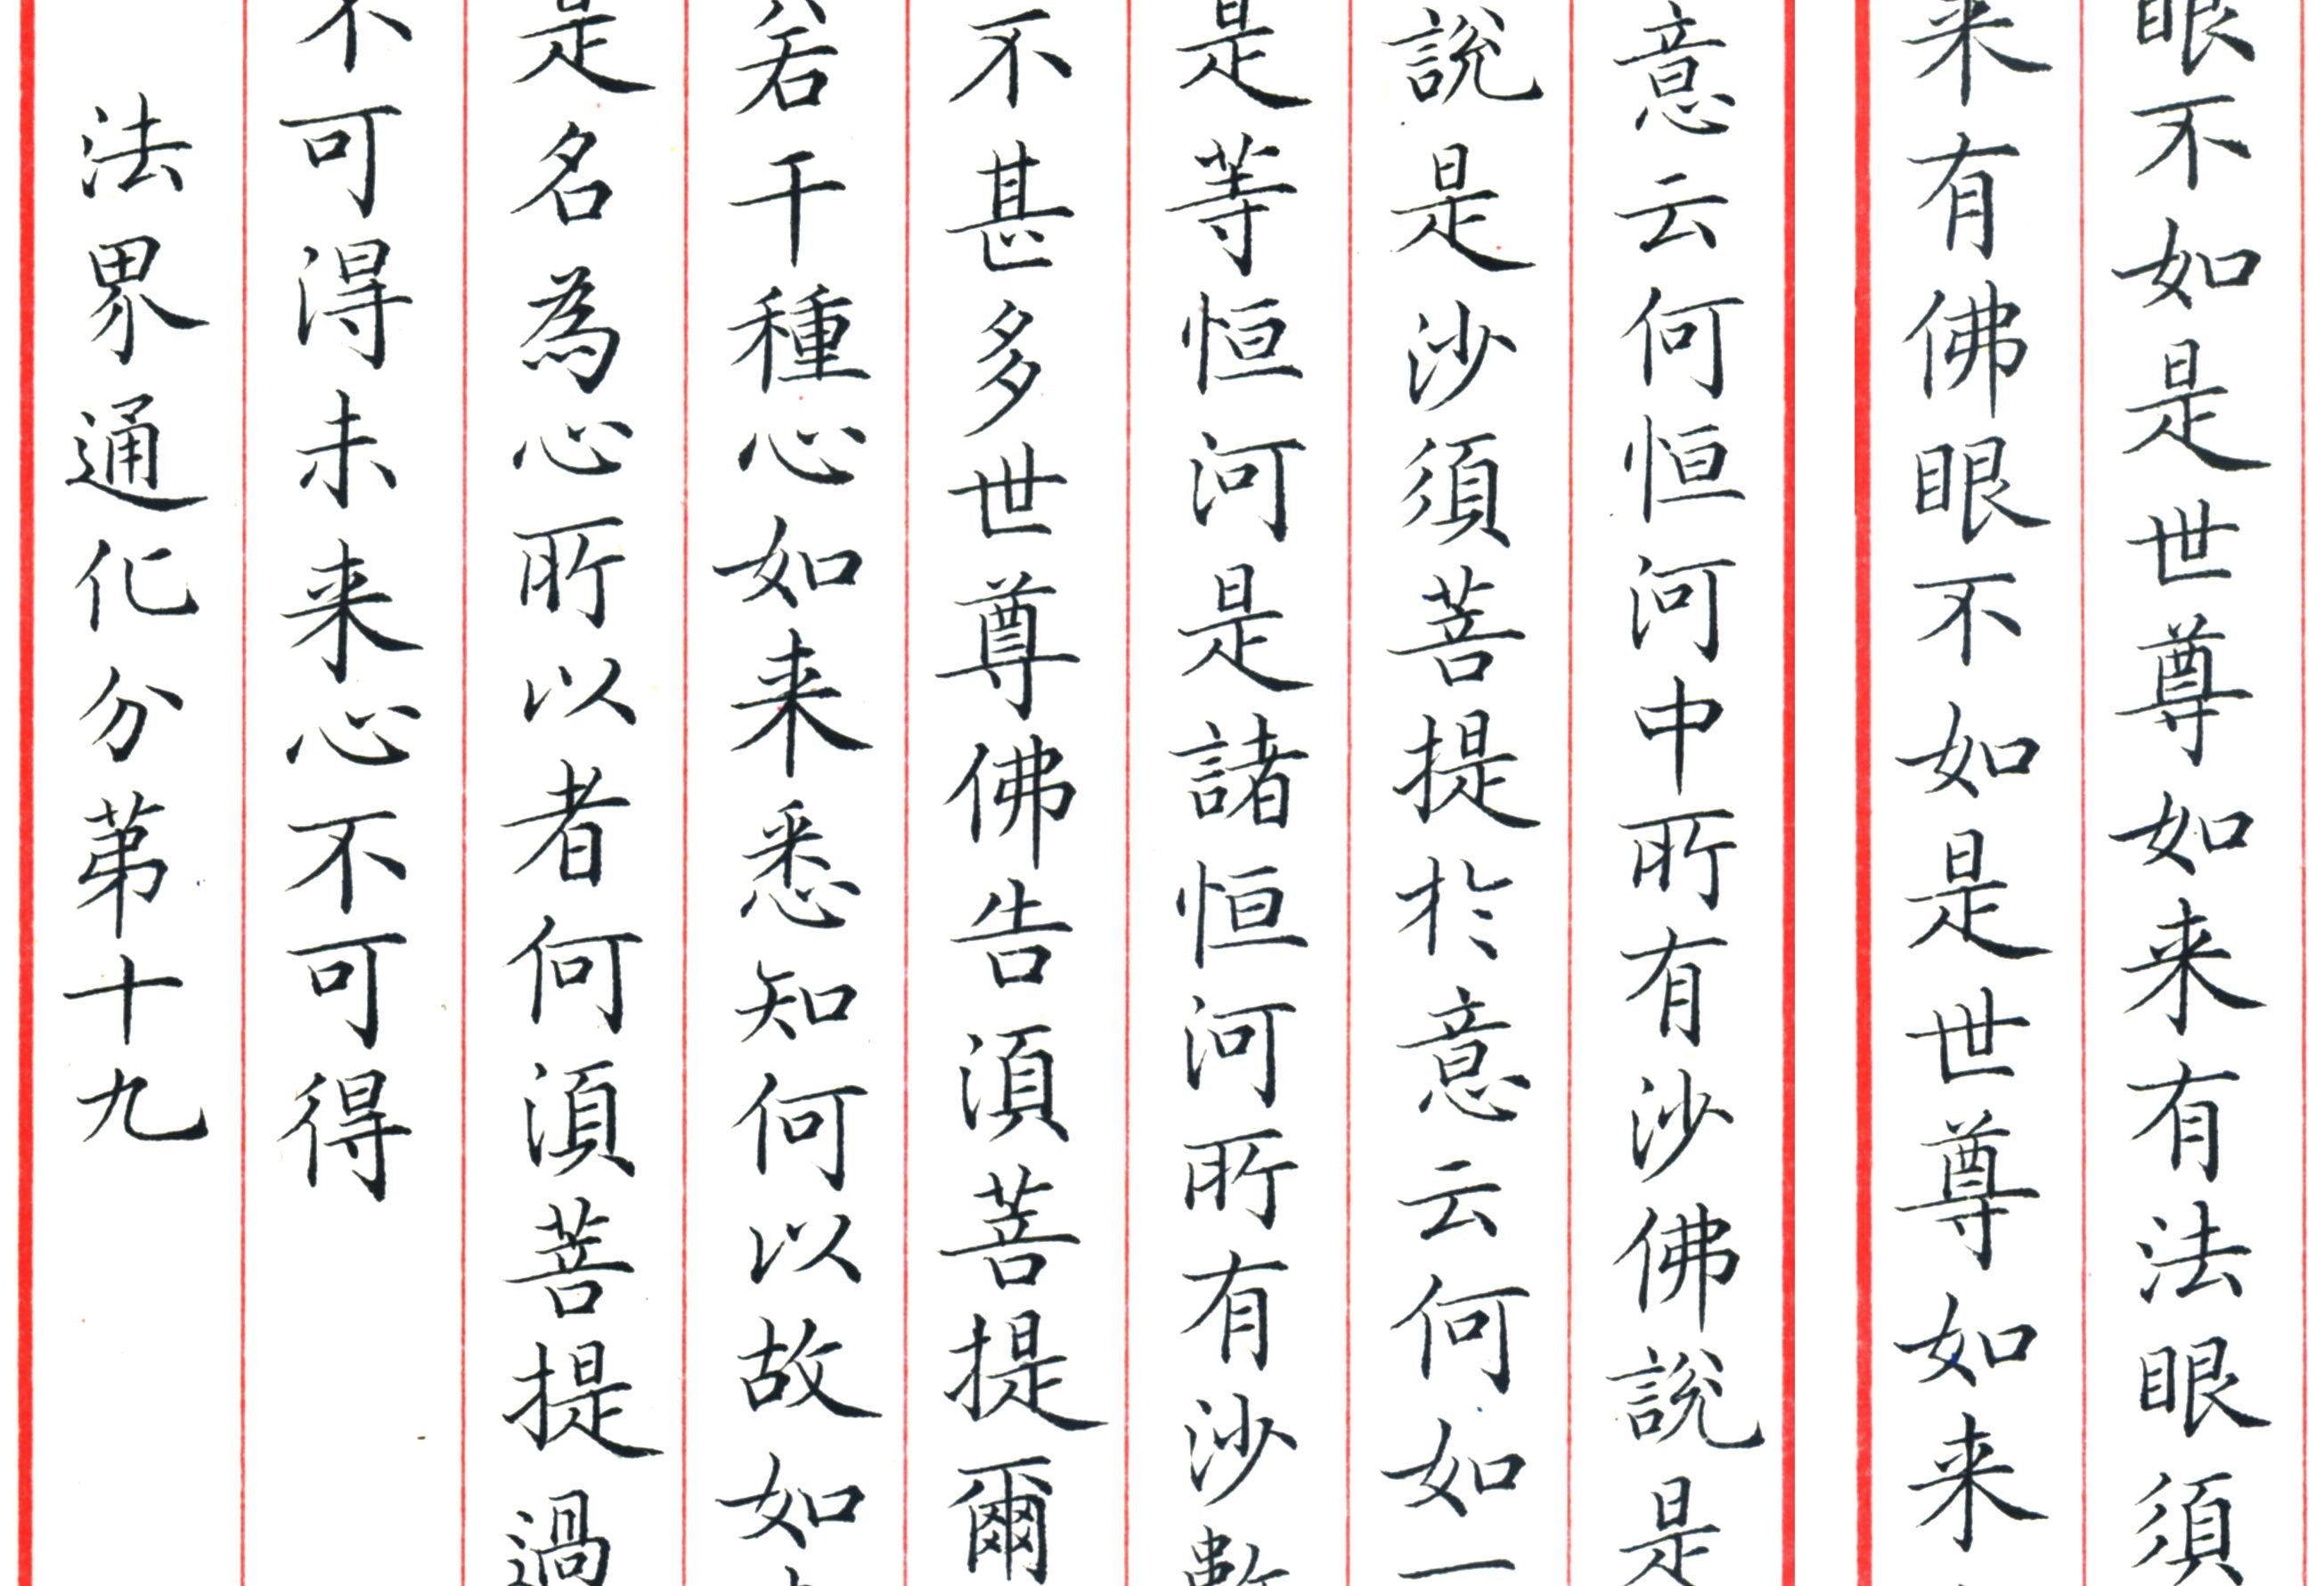 眼不如是世尊如来有法眼須
来有佛眼不如是世尊如来
意云何恒河中所有沙佛說是
說是沙須菩提於意云何如一
是等恒河是諸恒河所有沙數
不甚多世尊佛告須菩提爾
若干種心如来悉知何以故如
是名為心所以者何須菩提過
不可得未来心不可得
法界通化分第十九